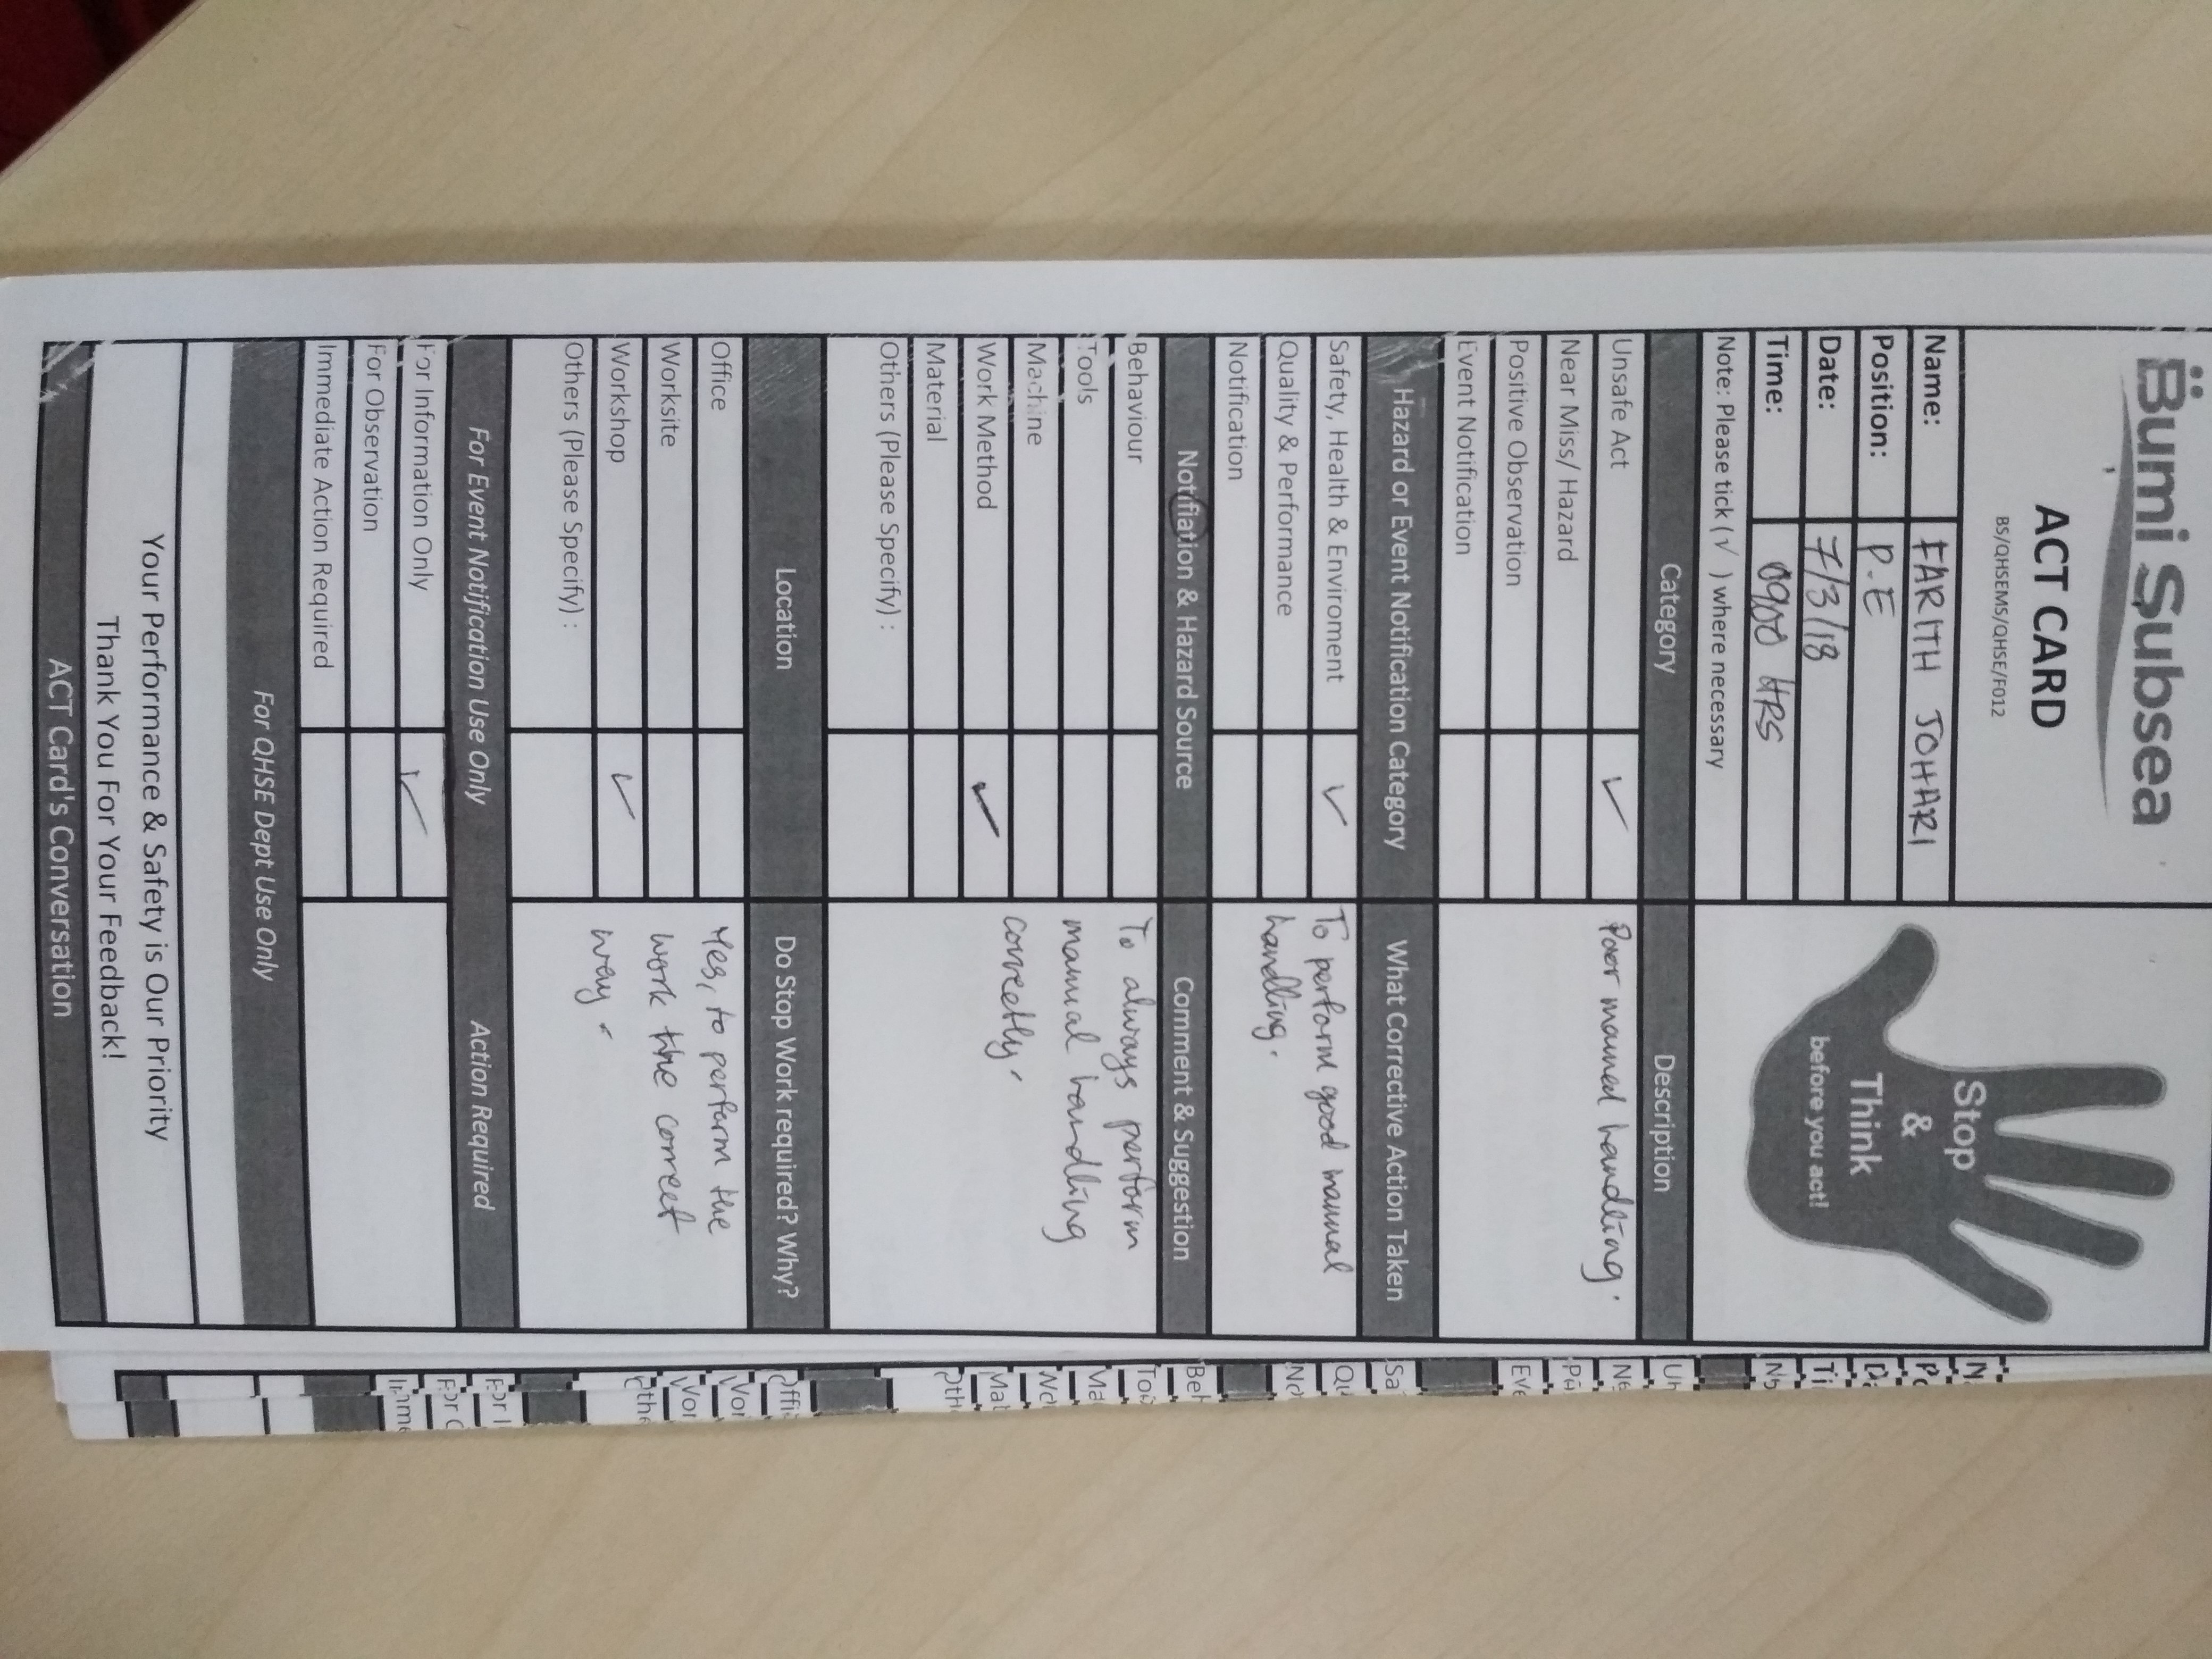 Bumi Subsea
ACT CARD
BS/QHSEMS/QHSE/F012
Stop
&
Think
before you act!
Name: FARITH JOHARI
Position: P.E
Date: 7/3/18
Time: 0900 HRS
Note: Please tick (√ ) where necessary
Category Description
Unsafe Act ✓ Poor manual handling.
Near Miss/ Hazard
Positive Observation
Event Notification
Hazard or Event Notification Category What Corrective Action Taken
Safety, Health & Enviroment ✓ To perform good manual
Quality & Performance handling.
Notification
Notfiation & Hazard Source Comment & Suggestion
Behaviour To always perform
Tools manual handling
Machine correctly.
Work Method ✓
Material
Others (Please Specify) :
Location Do Stop Work required? Why?
Office Yes, to perform the
Worksite work the correct
Workshop ✓ way.
Others (Please Specify) :
For Event Notification Use Only Action Required
For Information Only ✓
For Observation
Immediate Action Required
For QHSE Dept Use Only
Your Performance & Safety is Our Priority
Thank You For Your Feedback!
ACT Card's Conversation